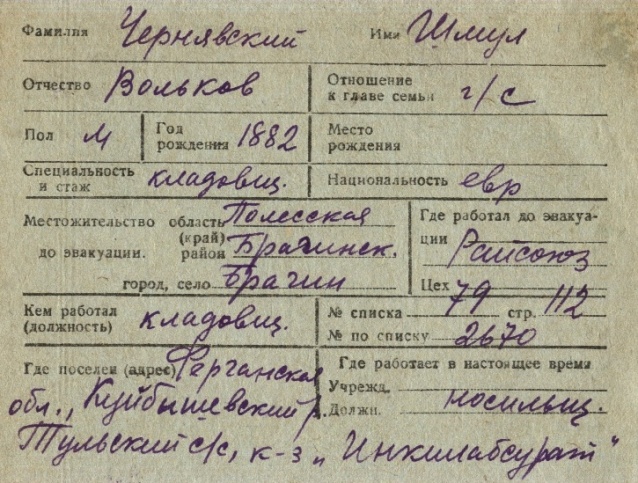 Фамилия Чернявский Имя Шмул
Отчество Вольков Отношение к главе семьи г/с
Пол М Год рождения 1882 Место рождения
Специальность и стаж кладовщ. Национальность евр
Местожительство до эвакуации. область (край) Полесская
район Брагинск.
город, село Брагин
Где работал до эвакуации Райсоюз
Цех
Кем работал (должность) кладовщ.
№ списка 79 стр. 112
№ по списку 2670
Где поселен (адрес) Ферганская
обл., Куйбышевский р.
Тульский с/с, к-з „Инкилабсурат"
Где работает в настоящее время
Учрежд.
Должн. носильщ.